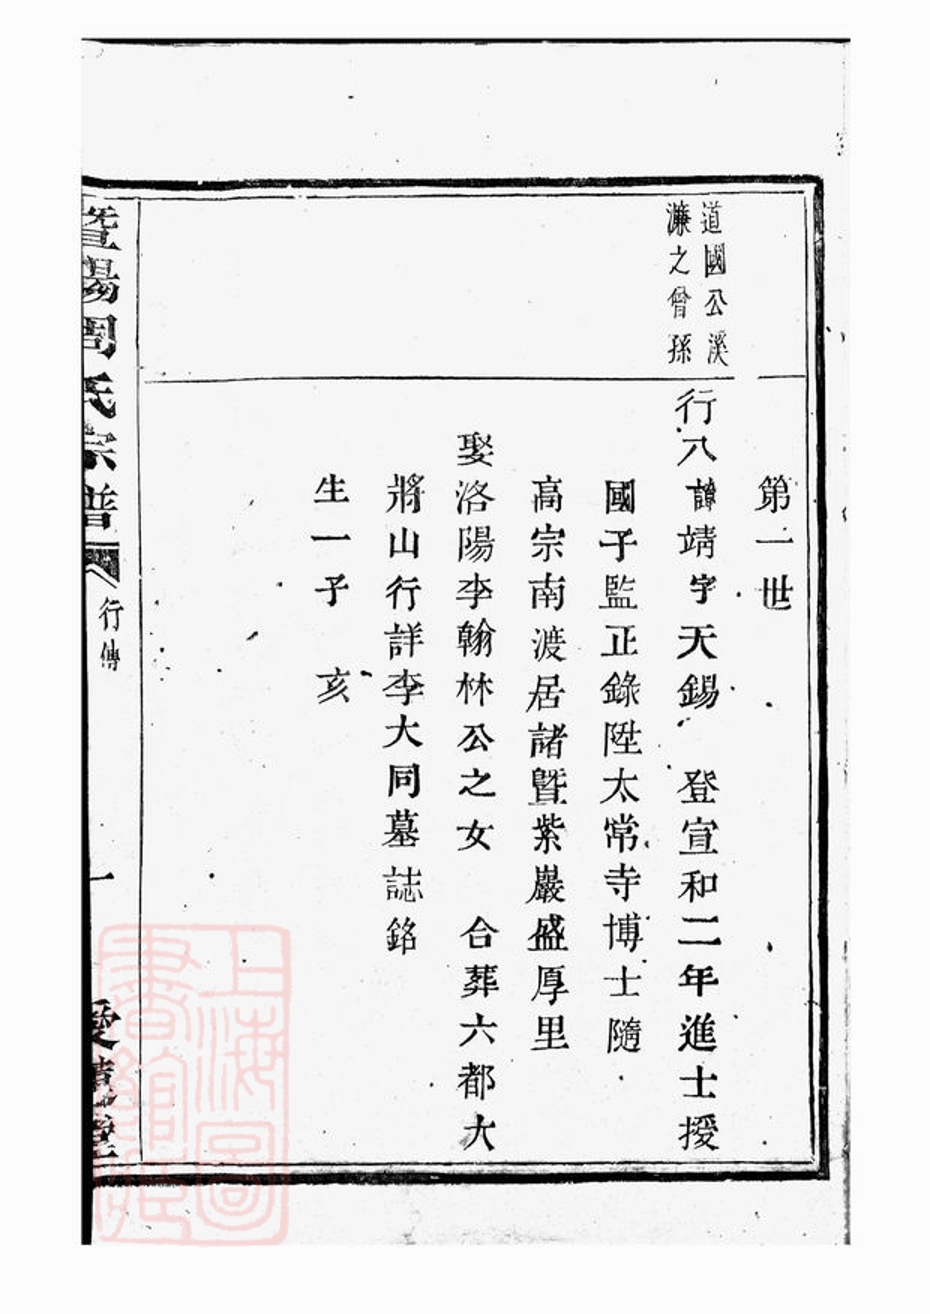 第一世
道國公溪
濂之曾孫
行八諱靖字天錫　登宣和二年進士授
國子監正錄陞太常寺博士隨
高宗南渡居諸曁紫巖盛厚里
娶洛陽李翰林公之女　合葬六都大
將山行詳李大同墓誌銘
生一子　亥
暨陽周氏宗譜
行傳
一
上海圖
書館